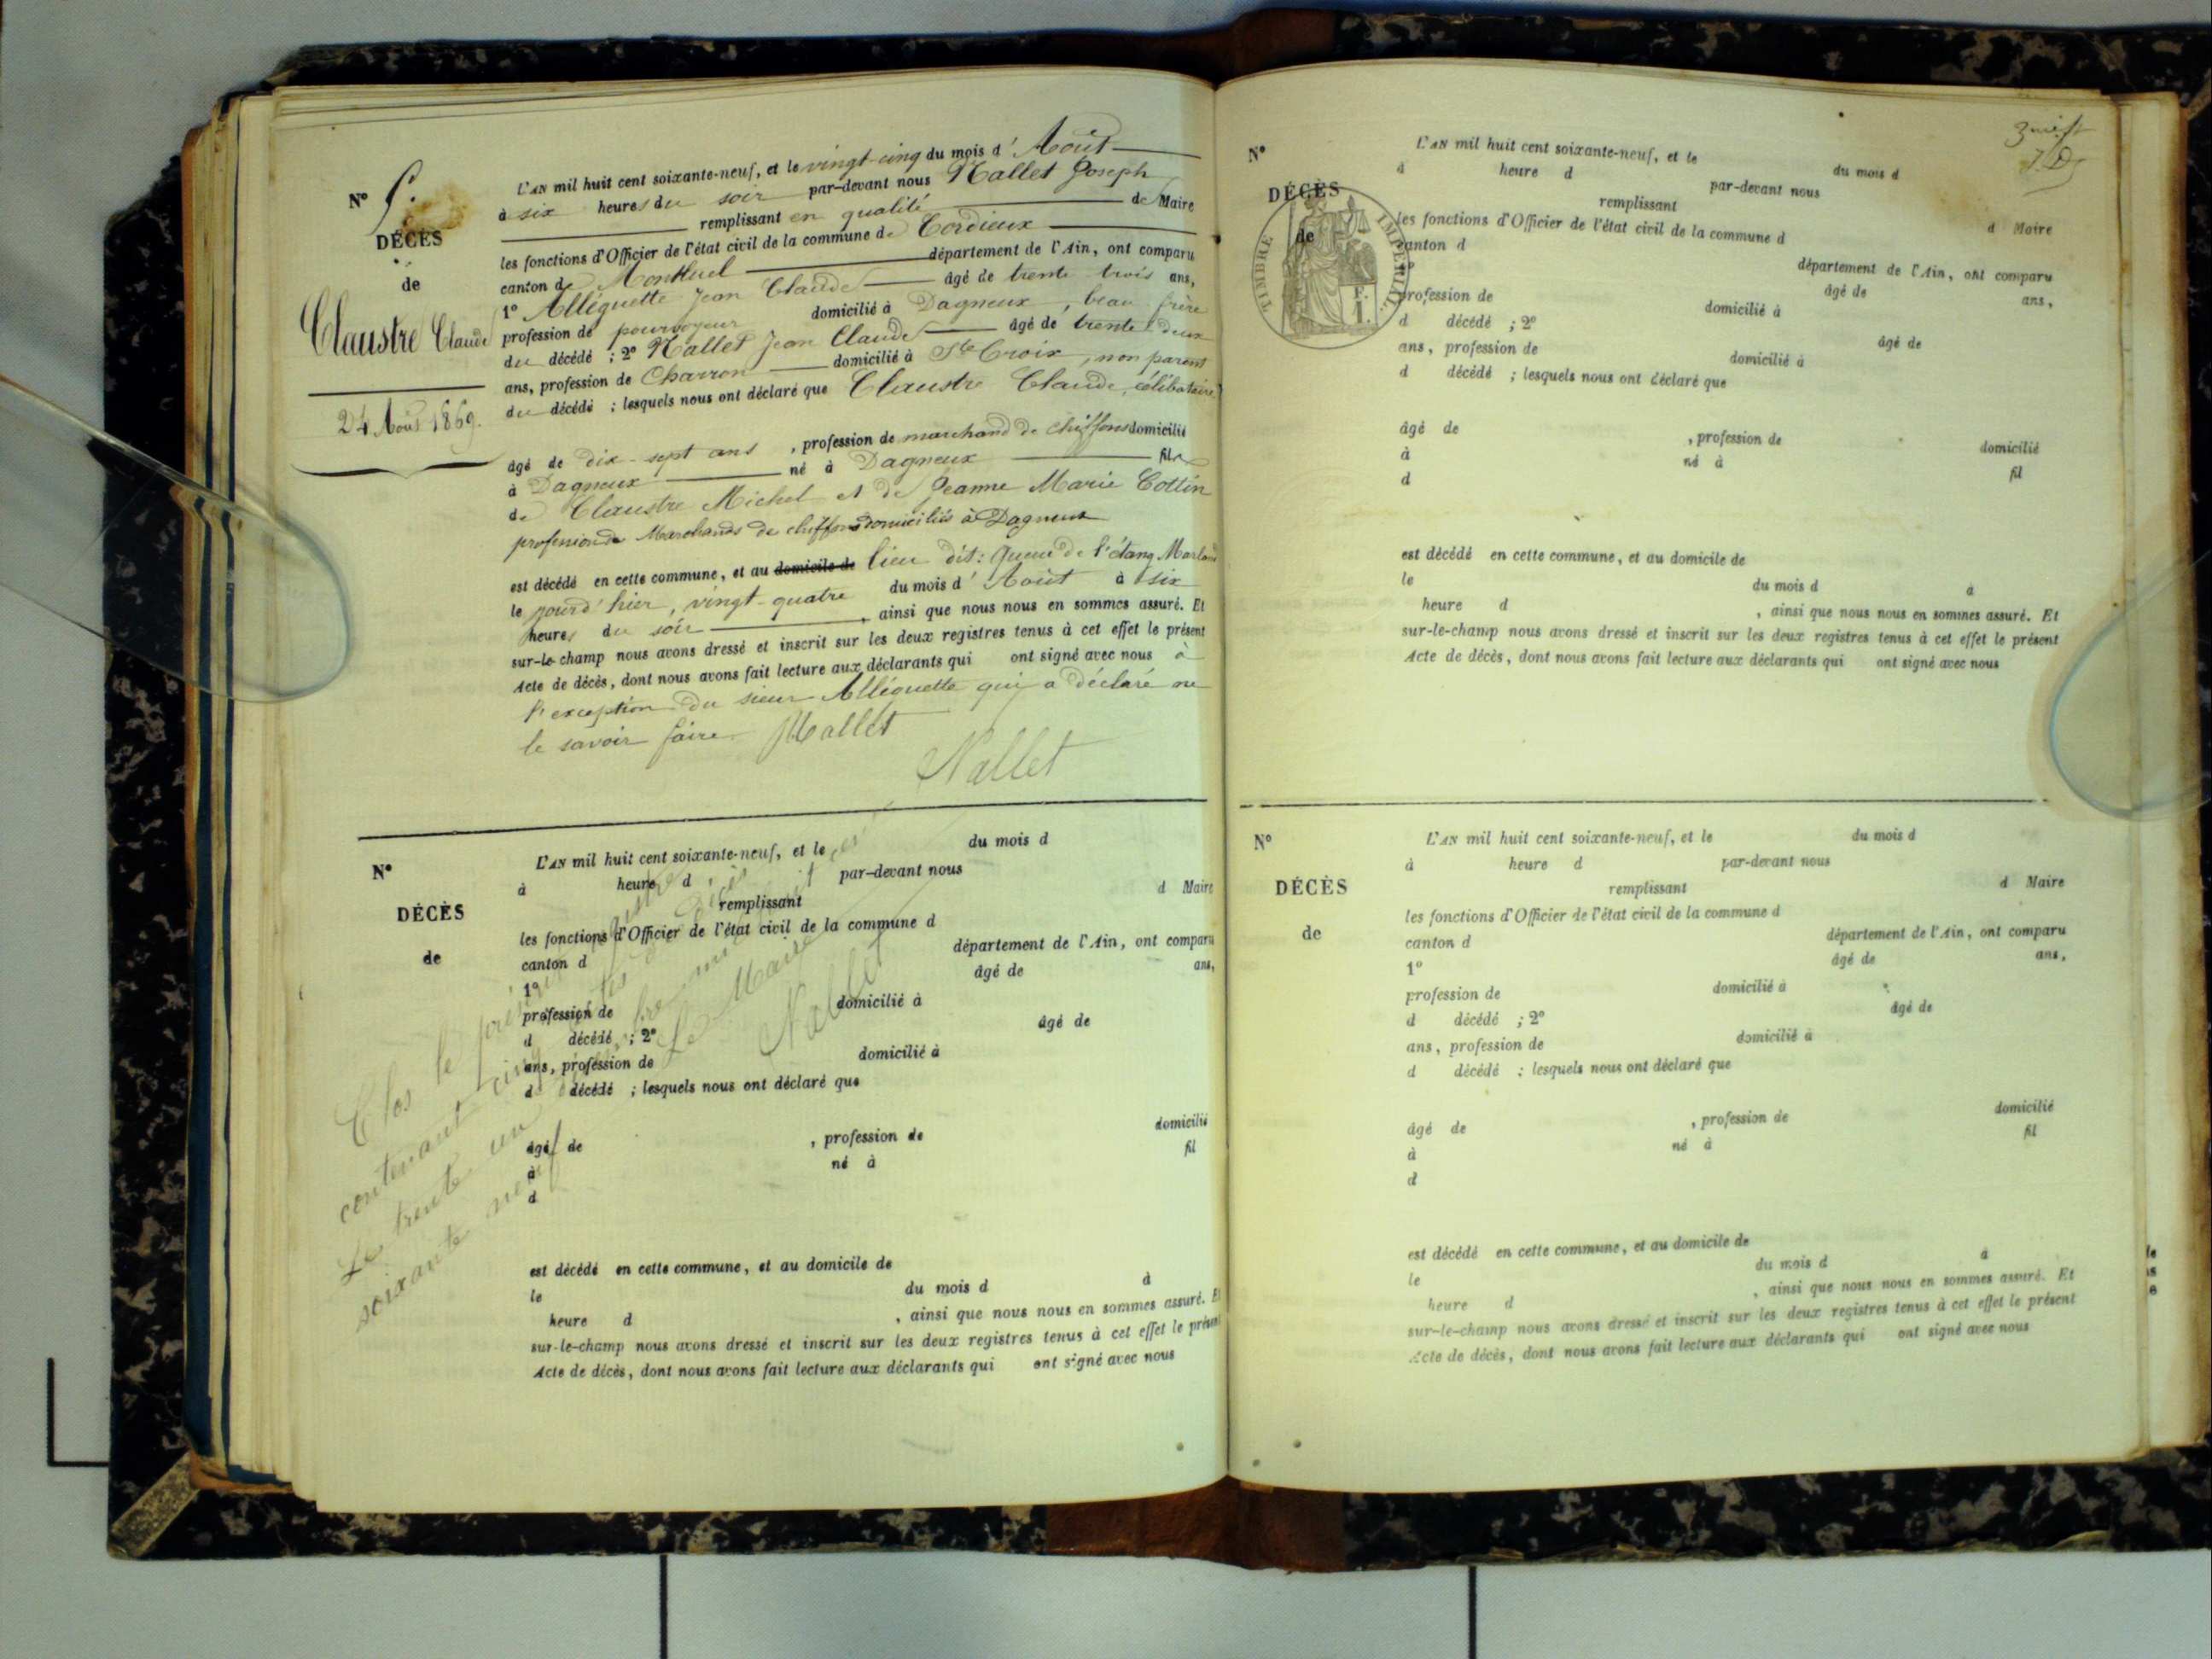 N° 5.
DÉCÈS
de
Claustre Claude
24 Août 1869.
L'AN mil huit cent soixante-neuf, et le vingt-cinq du mois d'Août
à six heures du soir par-devant nous Nallet Joseph
remplissant en qualité de Maire
les fonctions d'Officier de l'état civil de la commune de Cordieux
canton de Montluel département de l'Ain, ont comparu
1° Alléguette Jean Claude âgé de trente trois ans,
profession de pourvoyeur domicilié à Dagneux, beau frère
du décédé ; 2° Nallet Jean Claude âgé de trente deux
ans, profession de Charron domicilié à Ste Croix, non parent
du décédé ; lesquels nous ont déclaré que Claustre Claude, célibataire
âgé de dix-sept ans , profession de marchand de chiffons domicilié
à Dagneux né à Dagneux fils
de Claustre Michel et de Jeanne Marie Cottin
profession de Marchands de chiffons domiciliés à Dagneux
est décédé en cette commune, et au domicile de lieu dit: Queue de l'étang
le jourd'hier, vingt-quatre du mois d'Août à six
heures du soir , ainsi que nous nous en sommes assuré. Et
sur-le-champ nous avons dressé et inscrit sur les deux registres tenus à cet effet le présent
Acte de décès, dont nous avons fait lecture aux déclarants qui ont signé avec nous à
l'exception du sieur Alléguette qui a déclaré ne
le savoir faire Nallet
Nallet
N°
DÉCÈS
de
L'AN mil huit cent soixante-neuf, et le du mois d
à heure d par-devant nous
remplissant d Maire
les fonctions d'Officier de l'état civil de la commune d
canton d département de l'Ain, ont comparu
1° âgé de ans,
profession de domicilié à
d décédé ; 2° âgé de
ans, profession de domicilié à
d décédé ; lesquels nous ont déclaré que
âgé de , profession de domicilié
à né à fil
d
est décédé en cette commune, et au domicile de
le du mois d à
heure d , ainsi que nous nous en sommes assuré. Et
sur-le-champ nous avons dressé et inscrit sur les deux registres tenus à cet effet le présent
Acte de décès, dont nous avons fait lecture aux déclarants qui ont signé avec nous
Clos le présent registre
contenant cinq actes de décès
Le trente un
soixante neuf
Le Maire
Nallet
N°
DÉCÈS
de
TIMBRE IMPERIAL
F.
1.
L'AN mil huit cent soixante-neuf, et le du mois d
à heure d par-devant nous
remplissant d Maire
les fonctions d'Officier de l'état civil de la commune d
canton d département de l'Ain, ont comparu
1° âgé de ans,
profession de domicilié à
d décédé ; 2° âgé de
ans, profession de domicilié à
d décédé ; lesquels nous ont déclaré que
âgé de , profession de domicilié
à né à fil
d
est décédé en cette commune, et au domicile de
le du mois d à
heure d , ainsi que nous nous en sommes assuré. Et
sur-le-champ nous avons dressé et inscrit sur les deux registres tenus à cet effet le présent
Acte de décès, dont nous avons fait lecture aux déclarants qui ont signé avec nous
N°
DÉCÈS
de
L'AN mil huit cent soixante-neuf, et le du mois d
à heure d par-devant nous
remplissant d Maire
les fonctions d'Officier de l'état civil de la commune d
canton d département de l'Ain, ont comparu
1° âgé de ans,
profession de domicilié à
d décédé ; 2° âgé de
ans, profession de domicilié à
d décédé ; lesquels nous ont déclaré que
âgé de , profession de domicilié
à né à fil
d
est décédé en cette commune, et au domicile de
le du mois d à
heure d , ainsi que nous nous en sommes assuré. Et
sur-le-champ nous avons dressé et inscrit sur les deux registres tenus à cet effet le présent
Acte de décès, dont nous avons fait lecture aux déclarants qui ont signé avec nous